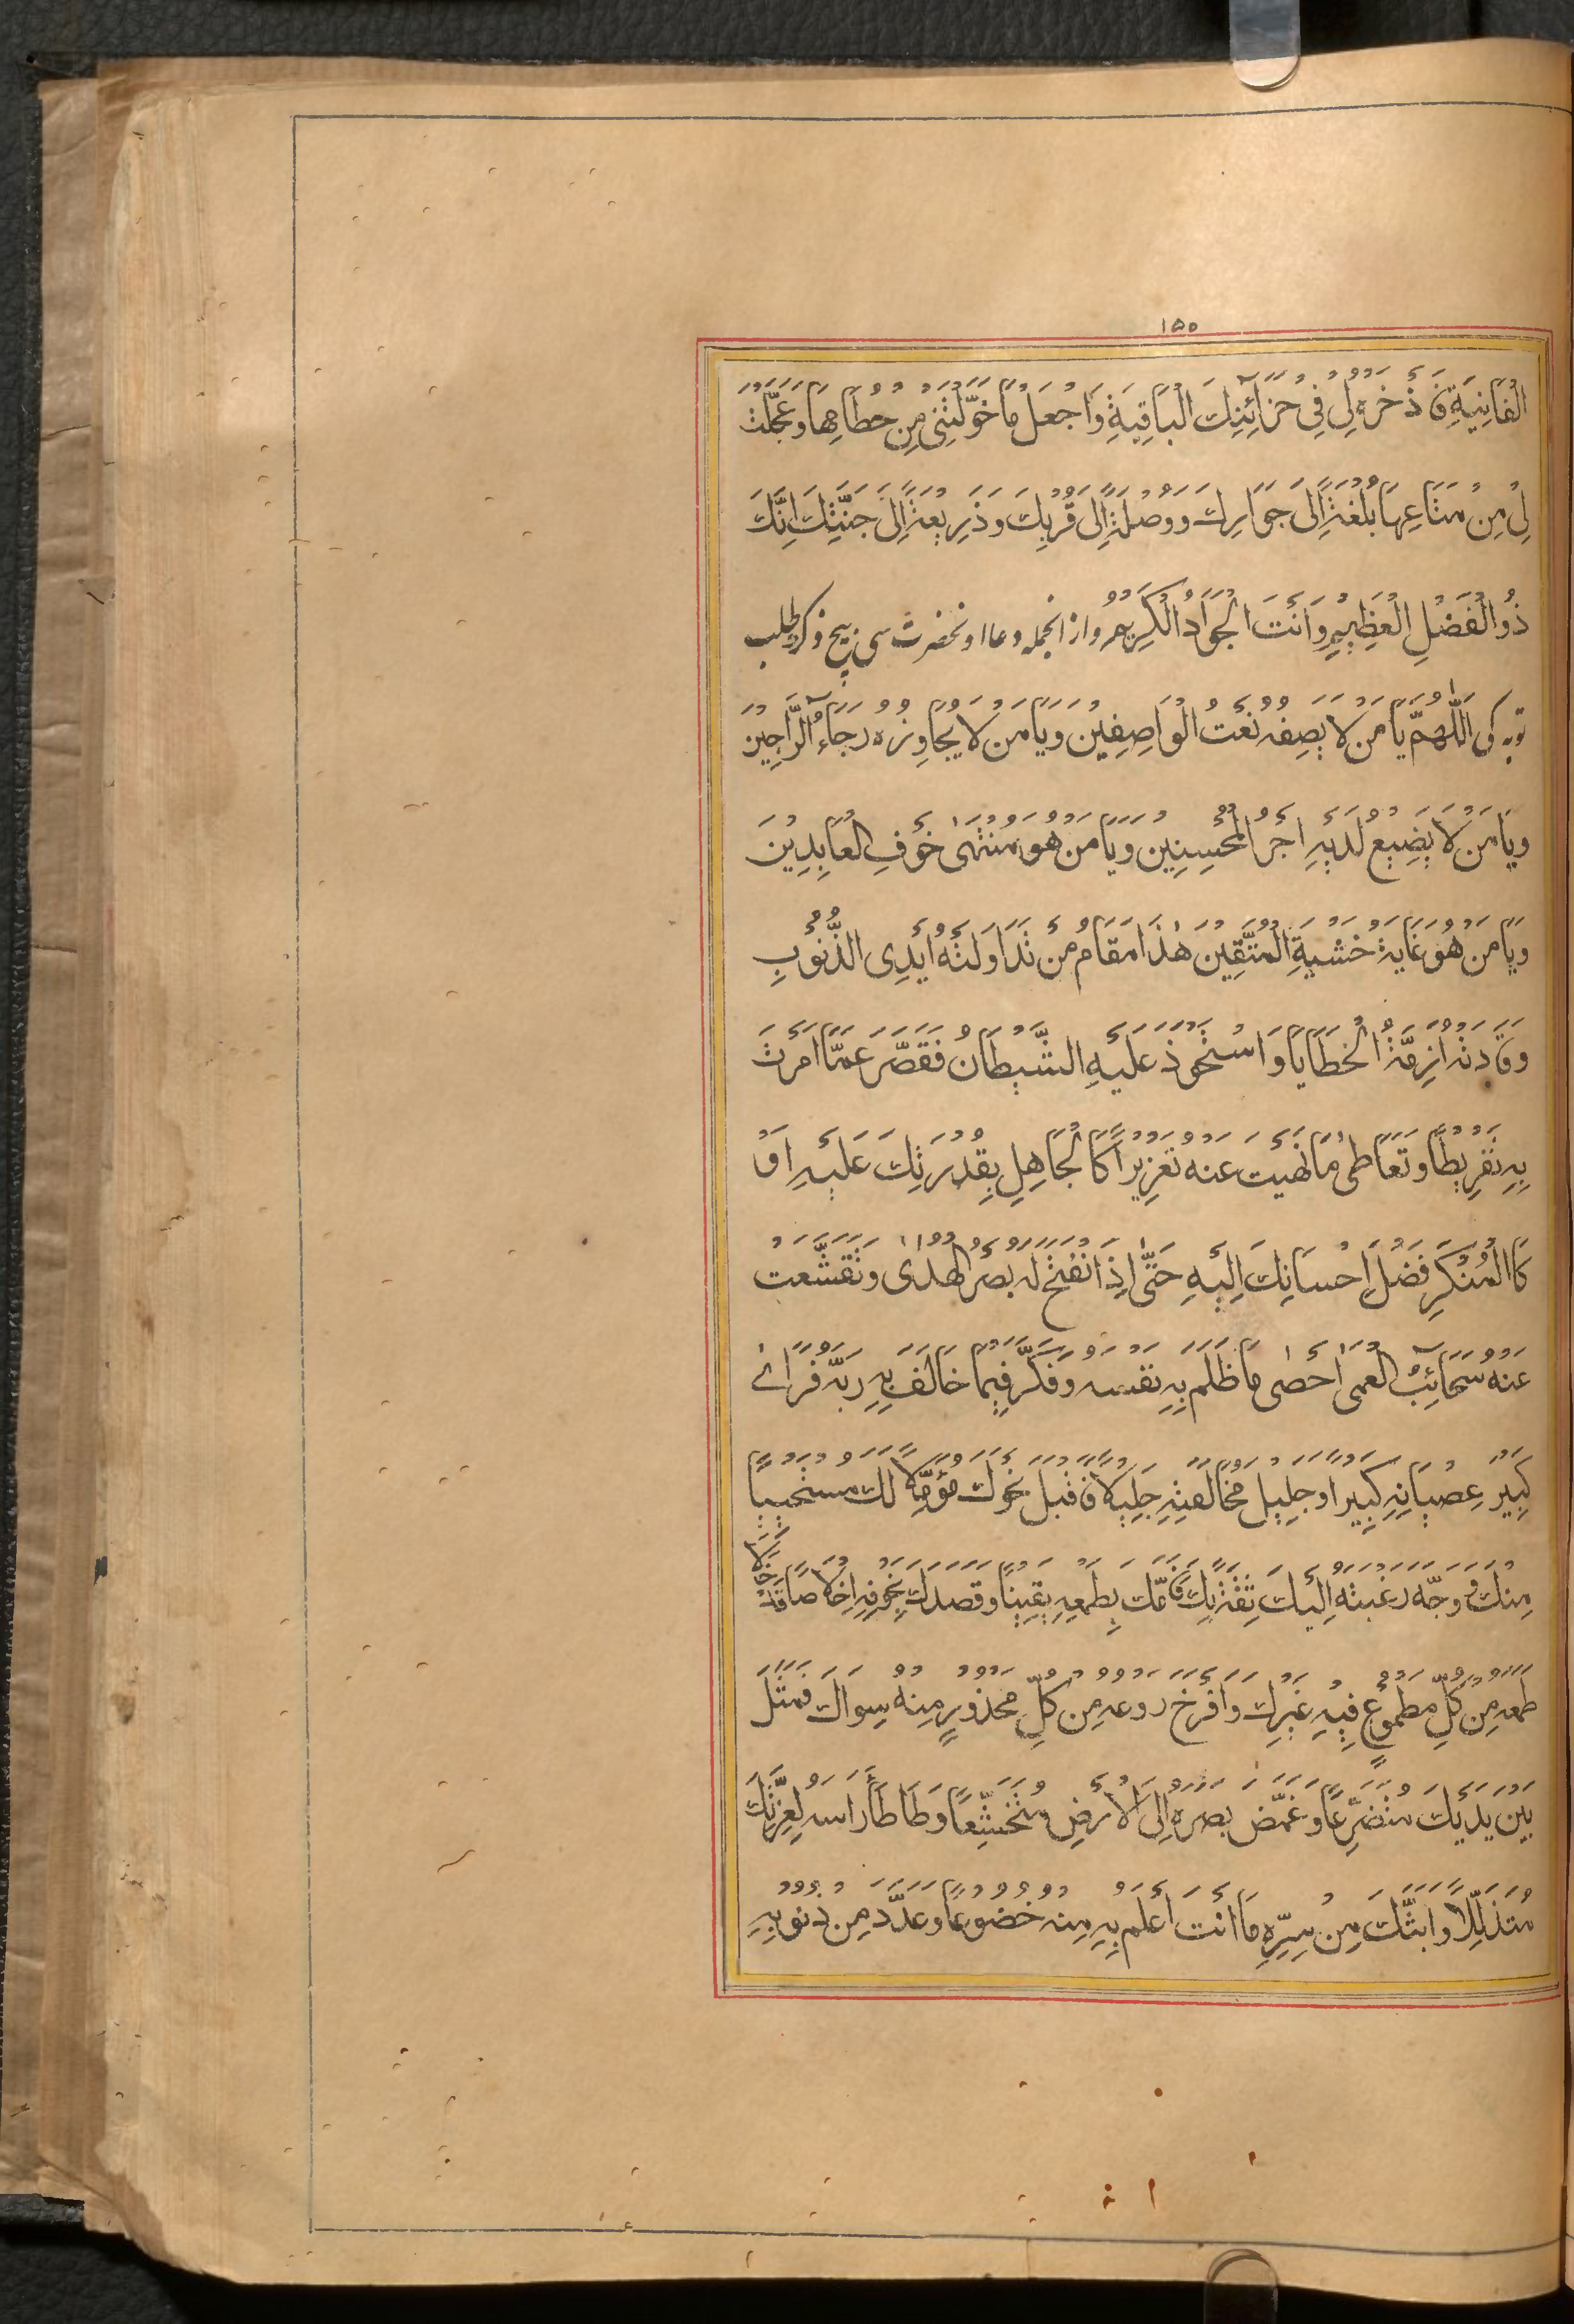 ١٥٠
الْفَانِيَةِ فَاذْخَرْهُ لِیْ فِیْ خَزَآئِنِكَ الْبَاقِيَةِ وَاجْعَلْ مَا خَوَّلْتَنِیْ مِنْ حُطَامِهَا وَعَجَّلْتَ
لِیْ مِنْ مَتَاعِهَا بُلْغَةً اِلٰی جَوَارِكَ وَوُصْلَةً اِلٰی قُرْبِكَ وَذَرِيْعَةً اِلٰی جَنَّتِكَ اِنَّكَ
ذُوالْفَضْلِ الْعَظِيْمِ وَاَنْتَ الْجَوَادُ الْكَرِيْمُ واز انجمله دعا اونحضرت سی بیچ ذکر وطلب
توبه کی اَللّٰهُمَّ يَا مَنْ لَا يَصِفُهٗ نَعْتُ الْوَاصِفِيْنَ وَيَا مَنْ لَا يُجَاوِزُهٗ رَجَآءُ الرَّاجِيْنَ
وَيَا مَنْ لَا يَضِيْعُ لَدَيْهِ اَجْرُ الْمُحْسِنِيْنَ وَيَا مَنْ هُوَ مُنْتَهٰی خَوْفِ الْعَابِدِيْنَ
وَيَا مَنْ هُوَ غَايَةُ خَشْيَةِ الْمُتَّقِيْنَ هٰذَا مَقَامُ مَنْ تَدَاوَلَتْهُ اَيْدِی الذُّنُوْبِ
وَقَادَتْهُ اَزِمَّةُ الْخَطَايَا وَاسْتَحْوَذَ عَلَيْهِ الشَّيْطَانُ فَقَصَّرَ عَمَّا اَمَرْتَ
بِهٖ تَفْرِيْطًا وَتَعَاطٰی مَا نَهَيْتَ عَنْهُ تَعْزِيْرًا كَالْجَاهِلِ بِقُدْرَتِكَ عَلَيْهِ اَوْ
كَالْمُنْكِرِ فَضْلَ اِحْسَانِكَ اِلَيْهِ حَتّٰی اِذَا انْفَتَحَ لَهٗ بَصَرُ الْهُدٰی وَتَقَشَّعَتْ
عَنْهُ سَحَآئِبُ الْعَمٰی اَحْصٰی مَا ظَلَمَ بِهٖ نَفْسَهٗ وَفَكَّرَ فِيْمَا خَالَفَ بِهٖ رَبَّهٗ فَرَاٰی
كَبِيْرَ عِصْيَانِهٖ كَبِيْرًا وَجَلِيْلَ مُخَالَفَتِهٖ جَلِيْلًا فَاَقْبَلَ نَحْوَكَ مُؤَمِّلًا لَكَ مُسْتَحْيِيًا
مِنْكَ وَوَجَّهَ رَغْبَتَهٗ اِلَيْكَ ثِقَةً بِكَ فَاَمَّكَ بِطَمَعِهٖ يَقِيْنًا وَقَصَدَكَ بِخَوْفِهٖ اِخْلَاصًا قَدْ خَلَا
طَمَعُهٗ مِنْ كُلِّ مَطْمُوْعٍ فِيْهِ غَيْرِكَ وَاَفْرَخَ رَوْعُهٗ مِنْ كُلِّ مَحْذُوْرٍ مِنْهُ سِوَاكَ فَمَثَلَ
بَيْنَ يَدَيْكَ مُتَضَرِّعًا وَغَمَّضَ بَصَرَهٗ اِلَی الْاَرْضِ مُتَخَشِّعًا وَطَاْطَاَ رَاْسَهٗ لِعِزَّتِكَ
مُتَذَلِّلًا وَاَبَثَّكَ مِنْ سِرِّهٖ مَا اَنْتَ اَعْلَمُ بِهٖ مِنْهُ خُضُوْعًا وَعَدَّدَ مِنْ ذُنُوْبِهٖ